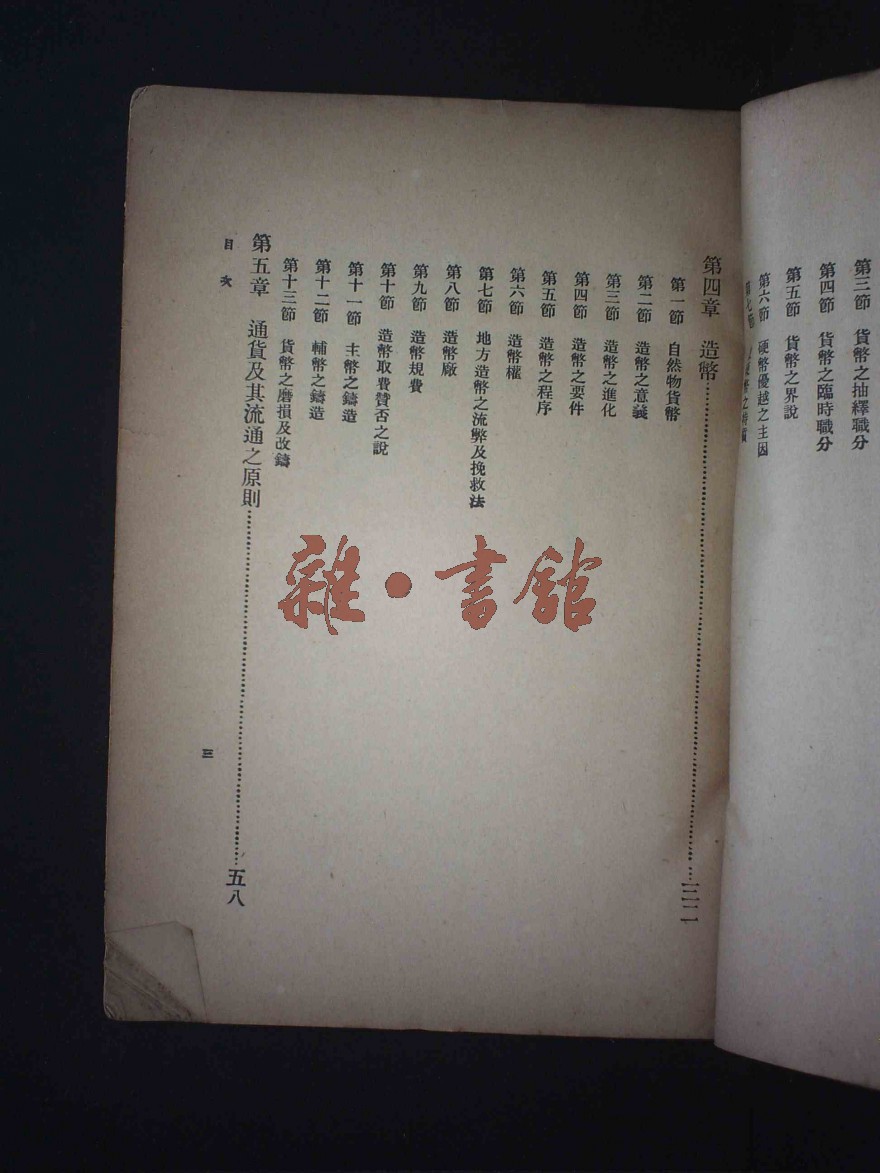 第三節　貨幣之抽繹職分
第四節　貨幣之臨時職分
第五節　貨幣之界說
第六節　硬幣優越之主因
第四章　造幣……三二
第一節　自然物貨幣
第二節　造幣之意義
第三節　造幣之進化
第四節　造幣之要件
第五節　造幣之程序
第六節　造幣權
第七節　地方造幣之流弊及挽救法
第八節　造幣廠
第九節　造幣規費
第十節　造幣取費贊否之說
第十一節　主幣之鑄造
第十二節　輔幣之鑄造
第十三節　貨幣之磨損及改鑄
第五章　通貨及其流通之原則……五八
目次
三
雜·書館